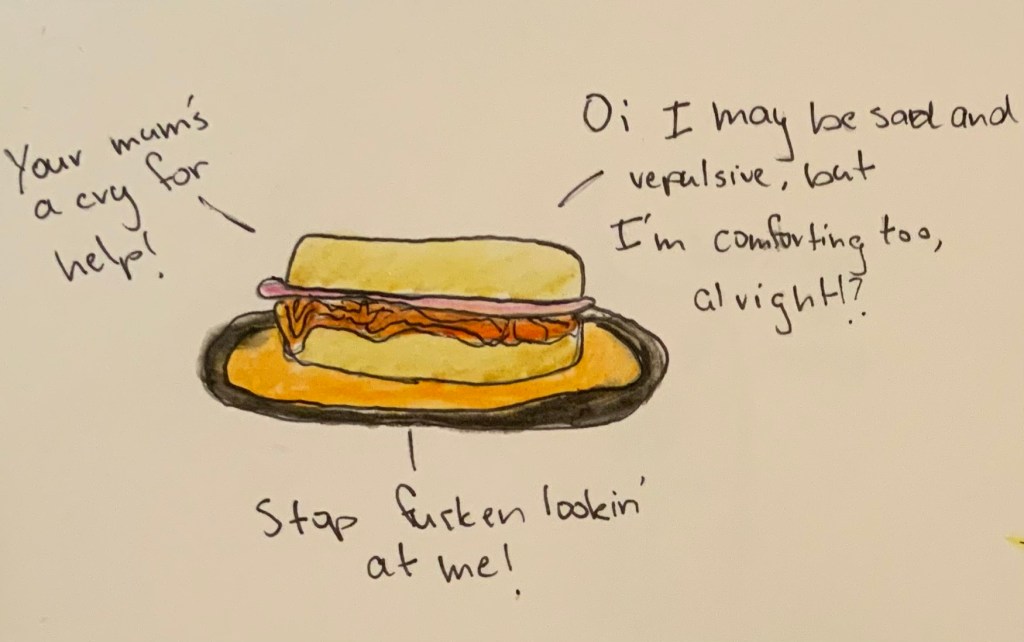 Your mum's
a cry for
help!
Oi I may be sad and
repulsive, but
I'm comforting too,
alright!?
Stop fucken lookin'
at me!